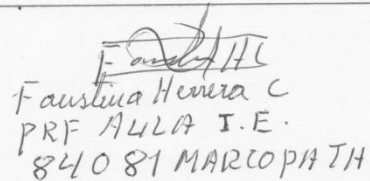 Faustina Herrera C
PRF AULA I.E.
84081 MARCOPATA